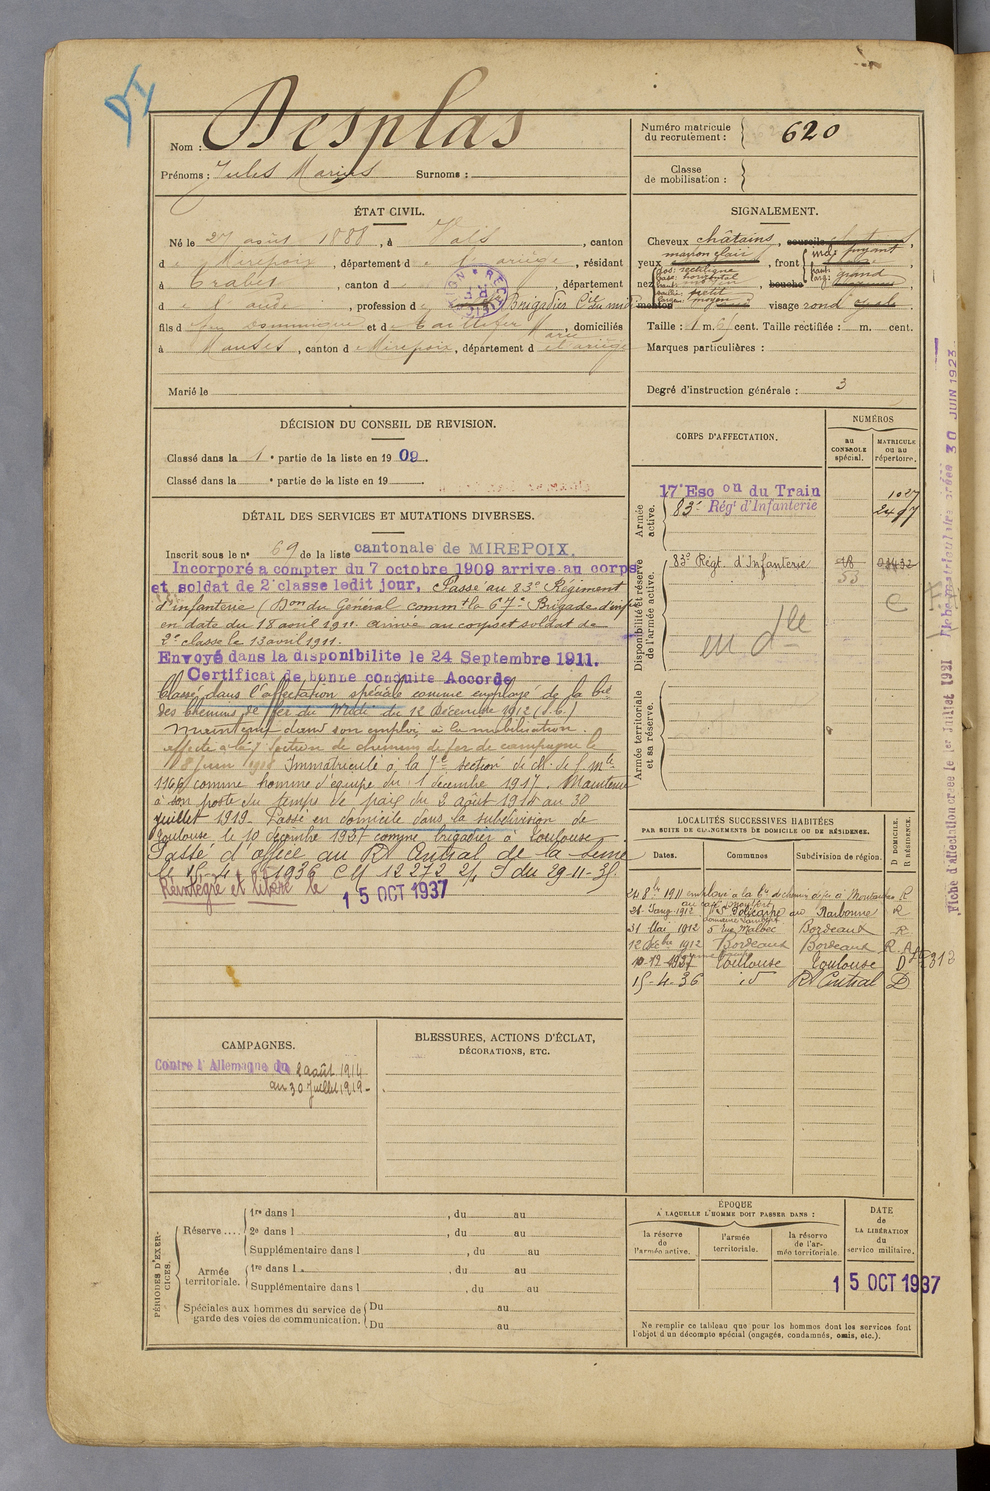 DI
Nom : Desplas
Prénoms : Jules Marius Surnoms :
Numéro matricule du recrutement : 620
Classe de mobilisation :
ÉTAT CIVIL.
Né le 27 août 1888, à Vals, canton
de Mirepoix, département de l'Ariège, résidant
à Trèbes, canton d , département
de l'Aude, profession de Brigadier Cie du midi
fils de Jean Dominique et de Taillefer Marie, domiciliés
à Manses, canton de Mirepoix, département de l'Ariège
Marié le
SIGNALEMENT.
Cheveux châtains, sourcils
yeux marron clair, front incl. fuyant
haut.
larg. grand
nez dos: rectiligne
base: horizontal
haut: moyen
saillie: petit
larg: moyen
bouche
menton visage rond ovale
Taille : 1 m. 61 cent. Taille rectifiée : m. cent.
Marques particulières :
Degré d'instruction générale : 3
DÉCISION DU CONSEIL DE REVISION.
Classé dans la 1e partie de la liste en 1909.
Classé dans la e partie de la liste en 19
DÉTAIL DES SERVICES ET MUTATIONS DIVERSES.
Inscrit sous le n° 69 de la liste cantonale de MIREPOIX.
Incorporé a compter du 7 octobre 1909 arrive au corps
et soldat de 2e classe ledit jour, Passé au 83e Régiment
d'infanterie (Don du Général commt la 67e Brigade d'infie
en date du 18 avril 1911. arrivé au corps et soldat de
2e classe le 13 avril 1911.
Envoyé dans la disponibilite le 24 Septembre 1911.
Certificat de bonne conduite Accordé
Classé dans l'affectation spéciale comme employé de la Cie
des Chemins de fer du Midi du 12 décembre 1912 (S.C.)
Maintenu dans son emploi à la mobilisation.
affecté à la 7e section de chemins de fer de campagne le
18 juin 1916 Immatriculé à la 7e section de ch. de f. Mle
1966 comme homme d'équipe du 1 décembre 1917. Maintenu
à son poste du temps de paix du 2 août 1914 au 30
juillet 1919. Passé en domicile dans la subdivision de
Toulouse le 10 décembre 1937 comme brigadier à Toulouse
Passé d'office au Rt Central de la Seine
le 15-4-1936 C M 12272 2/1 S du 29-11-35
Réintégré et libéré le 15 OCT 1937
CORPS D'AFFECTATION.
NUMÉROS
au CONTROLE spécial.
MATRICULE ou au répertoire.
Armée active.
17e Escon du Train 1027
83e Régt d'Infanterie 2497
Disponibilité et réserve de l'armée active.
83e Régt. d'Infanterie
53
C
en dlle
Armée territoriale et sa réserve.
LOCALITÉS SUCCESSIVES HABITÉES
PAR SUITE DE CHANGEMENTS DE DOMICILE OU DE RÉSIDENCE.
Dates. Communes Subdivision de région. D DOMICILE. R RÉSIDENCE.
24 8bre 1911 employé à la Cie de chemin de fer à Montauban R
26 Janv 1912 Narbonne R
31 Mai 1912 5 rue Malbec Bordeaux R
12 Décbre 1912 Bordeaux Bordeaux R. A
10-12-1937 Toulouse Toulouse D
15-4-36 id Rt Central D
CAMPAGNES.
Contre l'Allemagne du 2 août 1914
au 30 Juillet 1919-
BLESSURES, ACTIONS D'ÉCLAT,
DÉCORATIONS, ETC.
PÉRIODES D'EXERCICES.
Réserve ....
1re dans l , du au
2e dans l , du au
Supplémentaire dans l , du au
Armée territoriale.
1re dans l , du au
Supplémentaire dans l , du au
Spéciales aux hommes du service de garde des voies de communication.
Du au
Du au
ÉPOQUE
A LAQUELLE L'HOMME DOIT PASSER DANS :
la réserve de l'armée active.
l'armée territoriale.
la réserve de l'armée territoriale.
DATE
de
LA LIBÉRATION
du
service militaire.
15 OCT 1937
Ne remplir ce tableau que pour les hommes dont les services font
l'objet d'un décompte spécial (engagés, condamnés, omis, etc.).
Fiche d'Affectation créée le 1er Juillet 1921
Fiche matriculaire créée 30 JUIN 1923